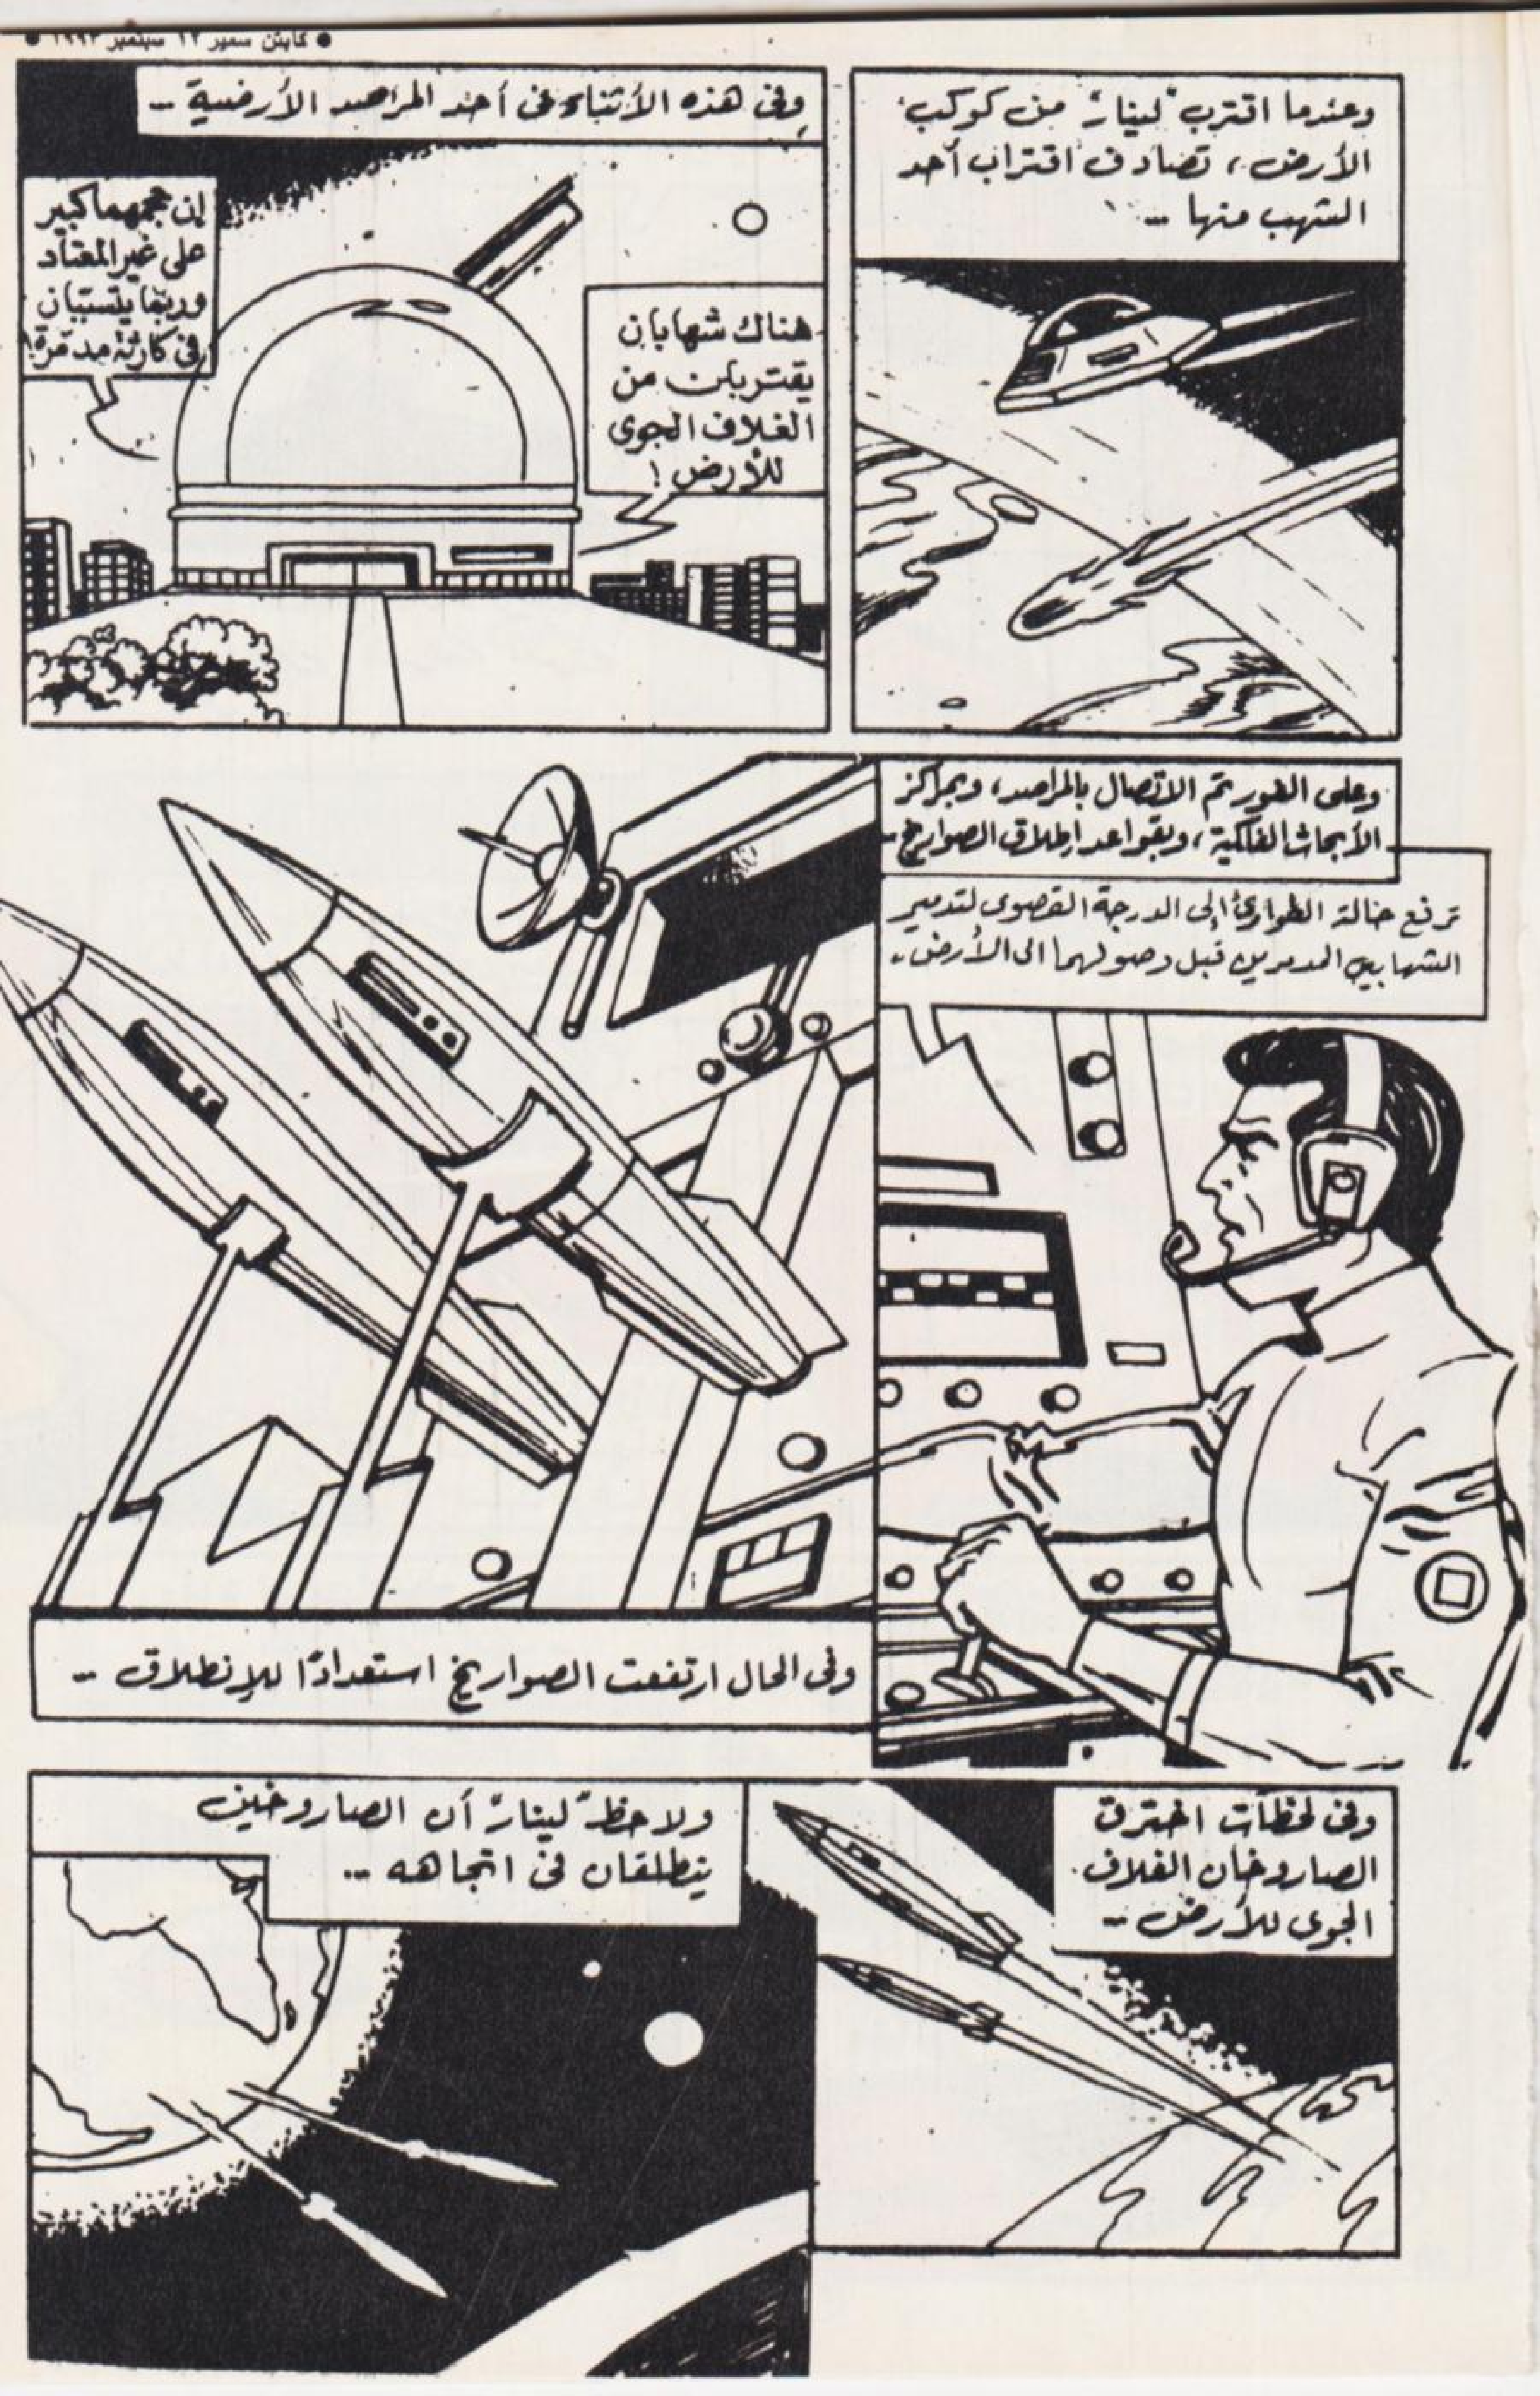 ● كابتن سمير ١٢ سبتمبر ١٩٩٣ ●
وعندما اقترب "لينار" من كوكب
الأرض، تصادف اقتراب أحد
الشهب منها --
وفى هذه الأثناء فى أحد المراصد الأرضية --
هناك شهابان
يقتربان من
الغلاف الجوى
للأرض!
إن حجمهما كبير
على غير المعتاد
وربما يتسببان
فى كارثة مدمرة!
وعلى الفور تم الاتصال بالمراصد، وبمراكز
الأبحاث الفلكية، وبقواعد إطلاق الصواريخ --
ترفع حالة الطوارئ إلى الدرجة القصوى لتدمير
الشهابين المدمرين قبل وصولهما الى الأرض --
وفى الحال ارتفعت الصواريخ استعدادًا للإنطلاق --
وفى لحظات اخترق
الصاروخان الغلاف
الجوى للأرض --
ولاحظ "لينار" أن الصاروخين
ينطلقان فى اتجاهه --